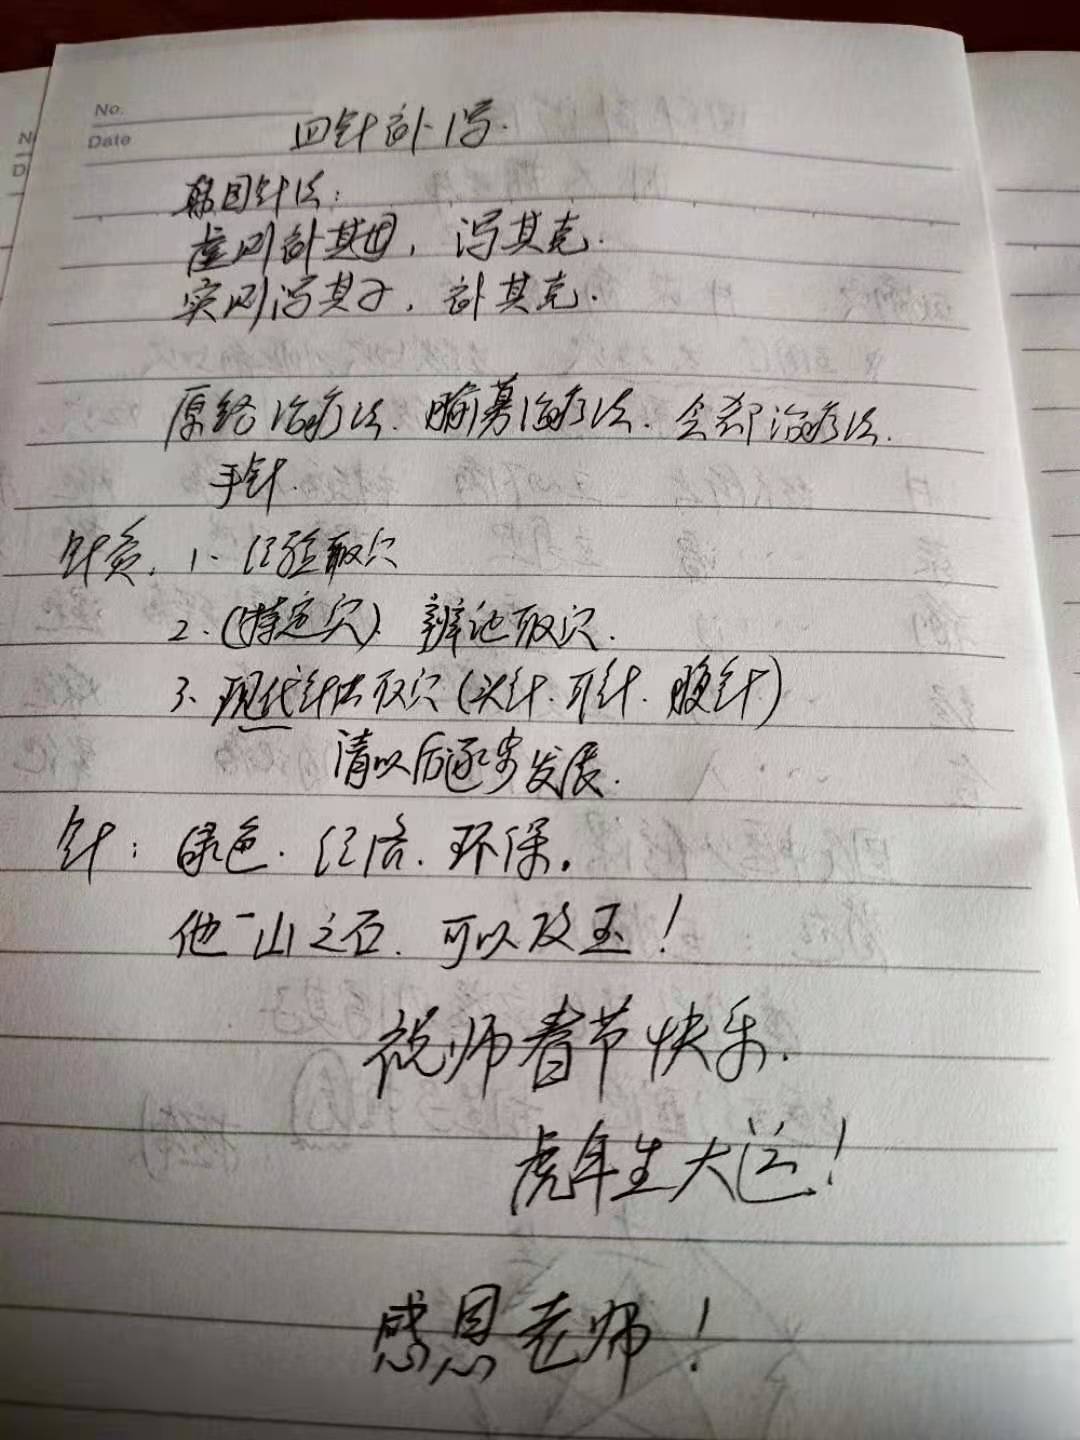 No.
Date
四针补泻.
韩国针法:
虚则补其母, 泻其克.
实则泻其子, 补其克.
原络治疗法. 腧募治疗法. 会郄治疗法.
手针.
针灸, 1、经验取穴
2.(特定穴) 辨证取穴.
3、现代针法取穴(头针.耳针.腹针)
请以后逐步发展.
针: 绿色. 经济. 环保.
他山之石. 可以攻玉!
祝师春节快乐.
虎年生大运!
感恩老师!